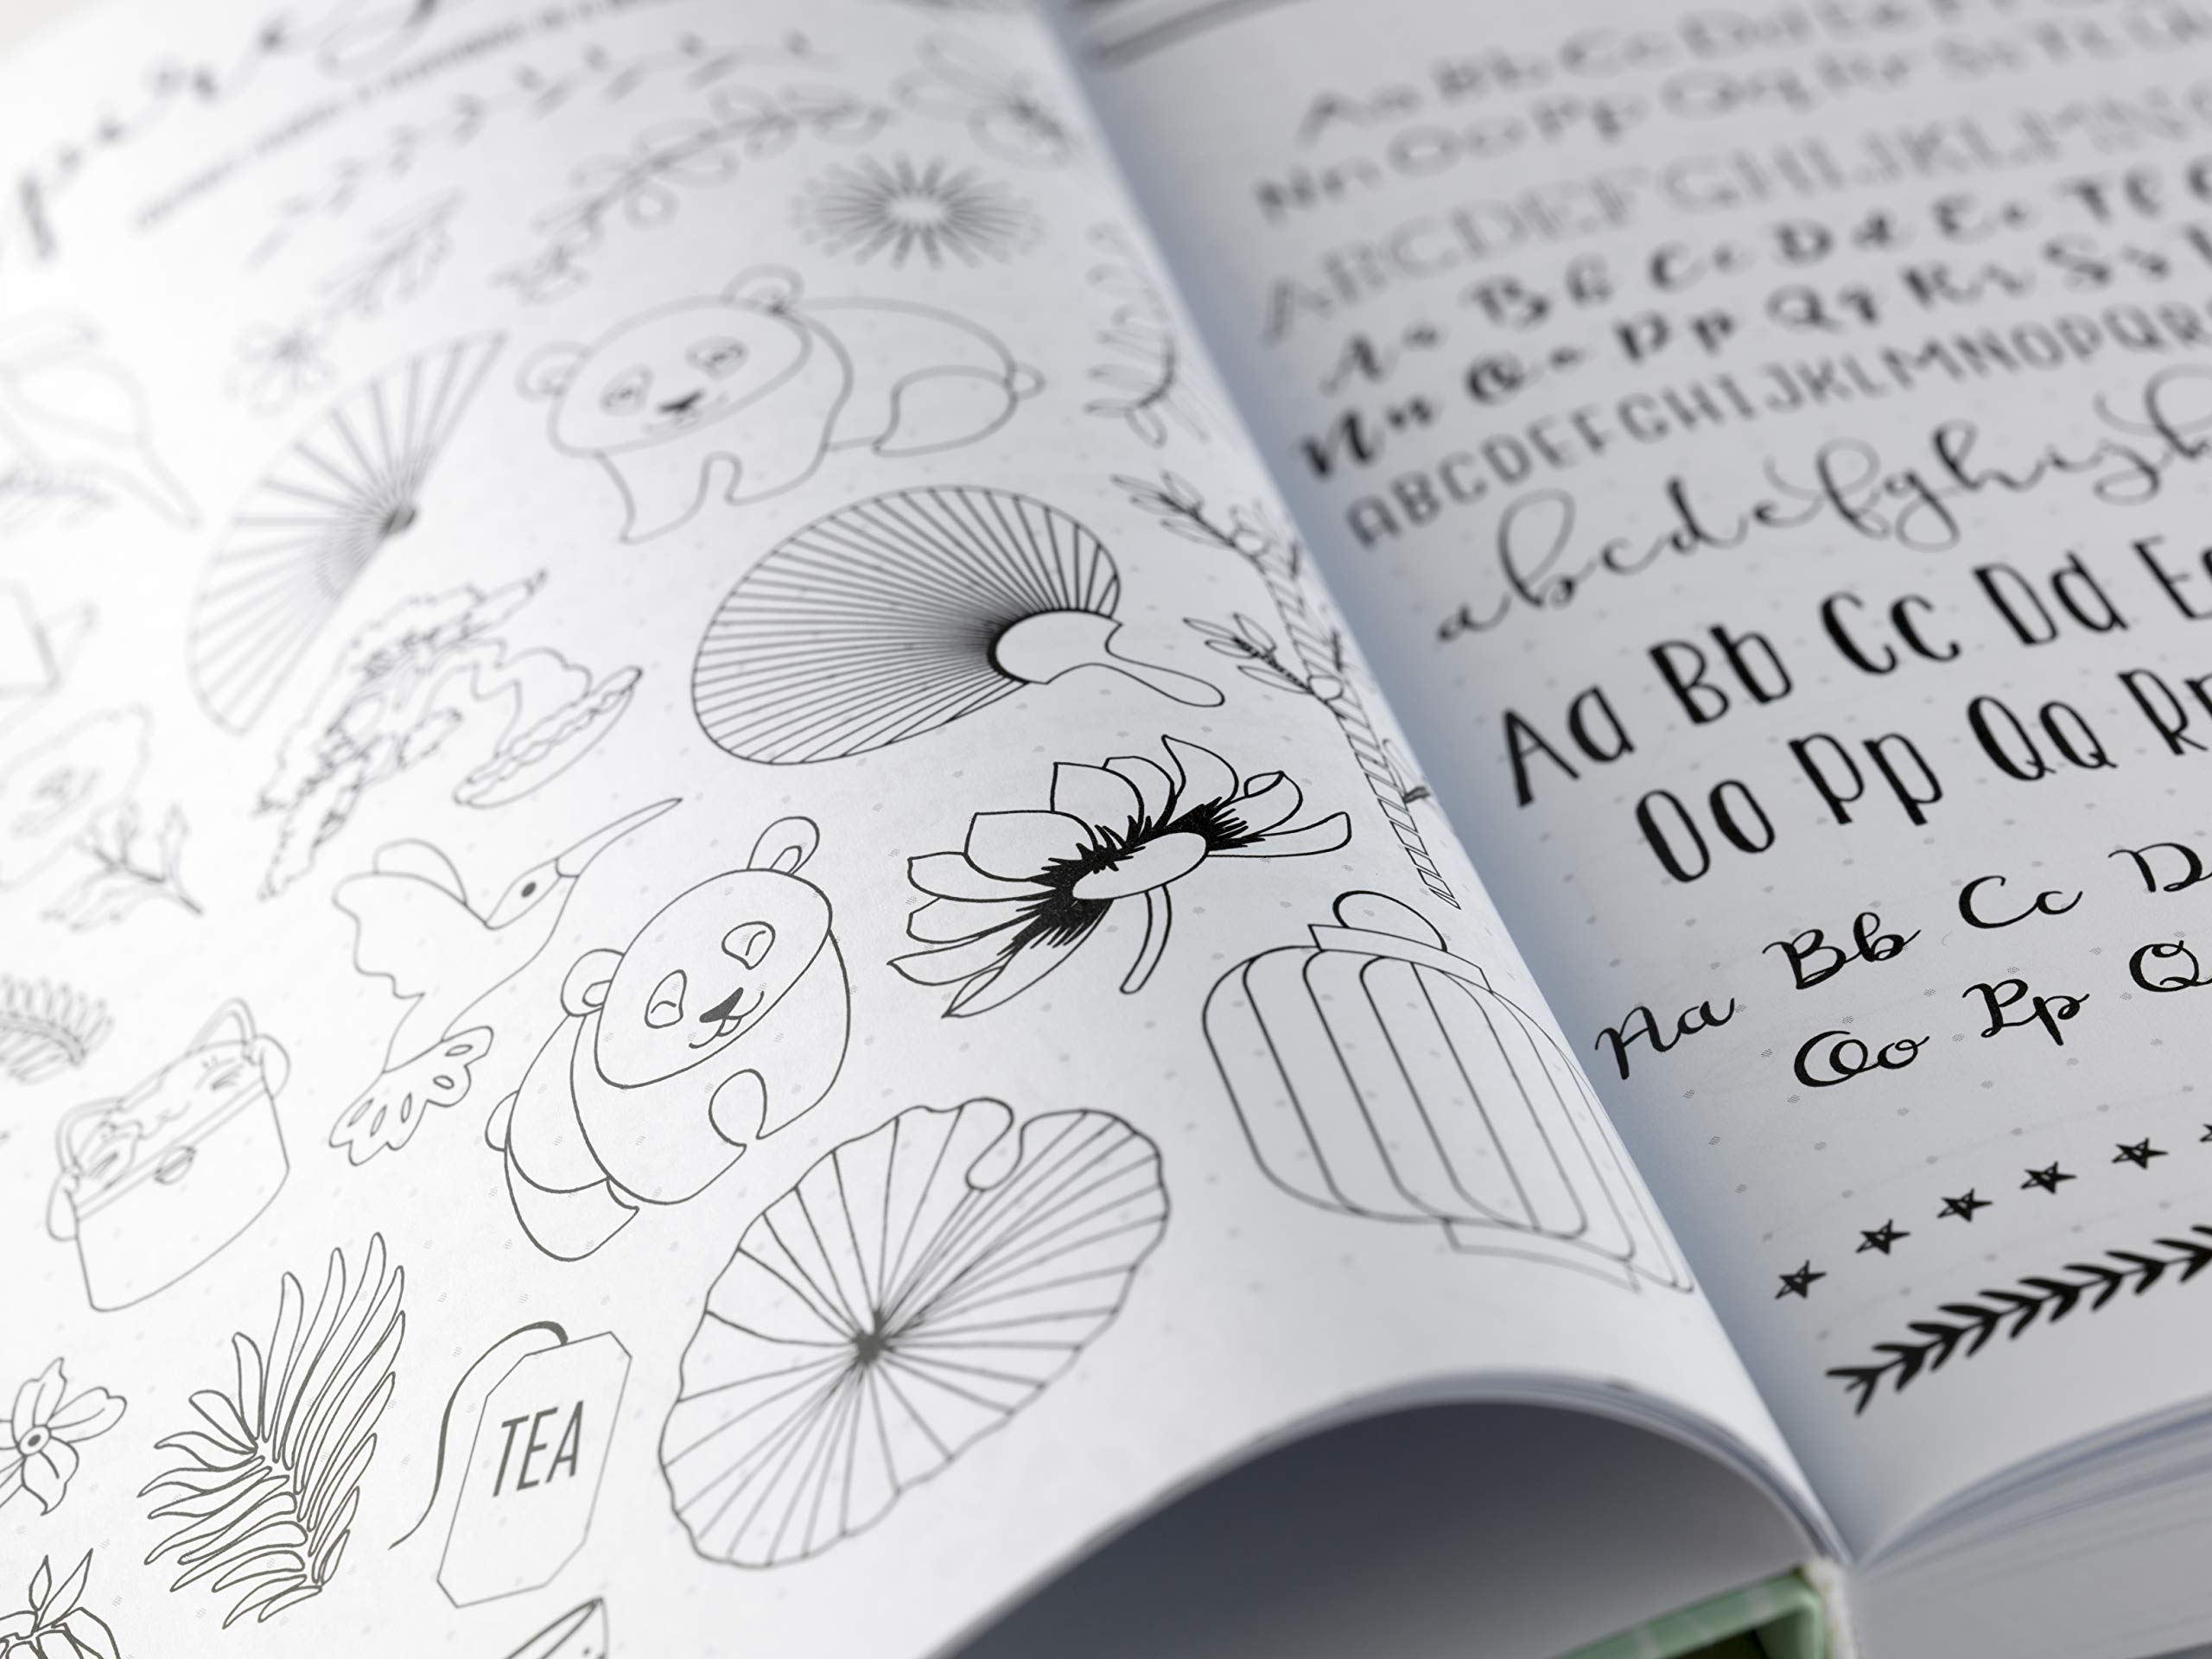 TEA
Aa Bb Cc Dd Ee Ff
Nn Oo Pp Qq Rr Ss Tt
ABCDEFGHIJKLMN
Aa Bb Cc Dd Ee Ff
Nn Oo Pp Qq Rr Ss
ABCDEFGHIJKLMNOPQR
abcdefghij
Aa Bb Cc Dd
Oo Pp Qq
Aa Bb Cc D
Oo Pp Q